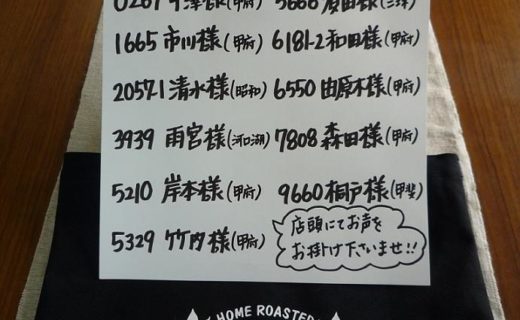 1665 市川様(甲府) 6181-2 和田様(甲府)
2057-1 清水様(昭和) 6550 由原木様(甲府)
3939 雨宮様(河口湖) 7808 森田様(甲府)
5210 岸本様(甲府) 9660 桐戸様(甲斐)
5329 竹内様(甲府)
店頭にてお声を
お掛け下さいませ!!
HOME ROASTER